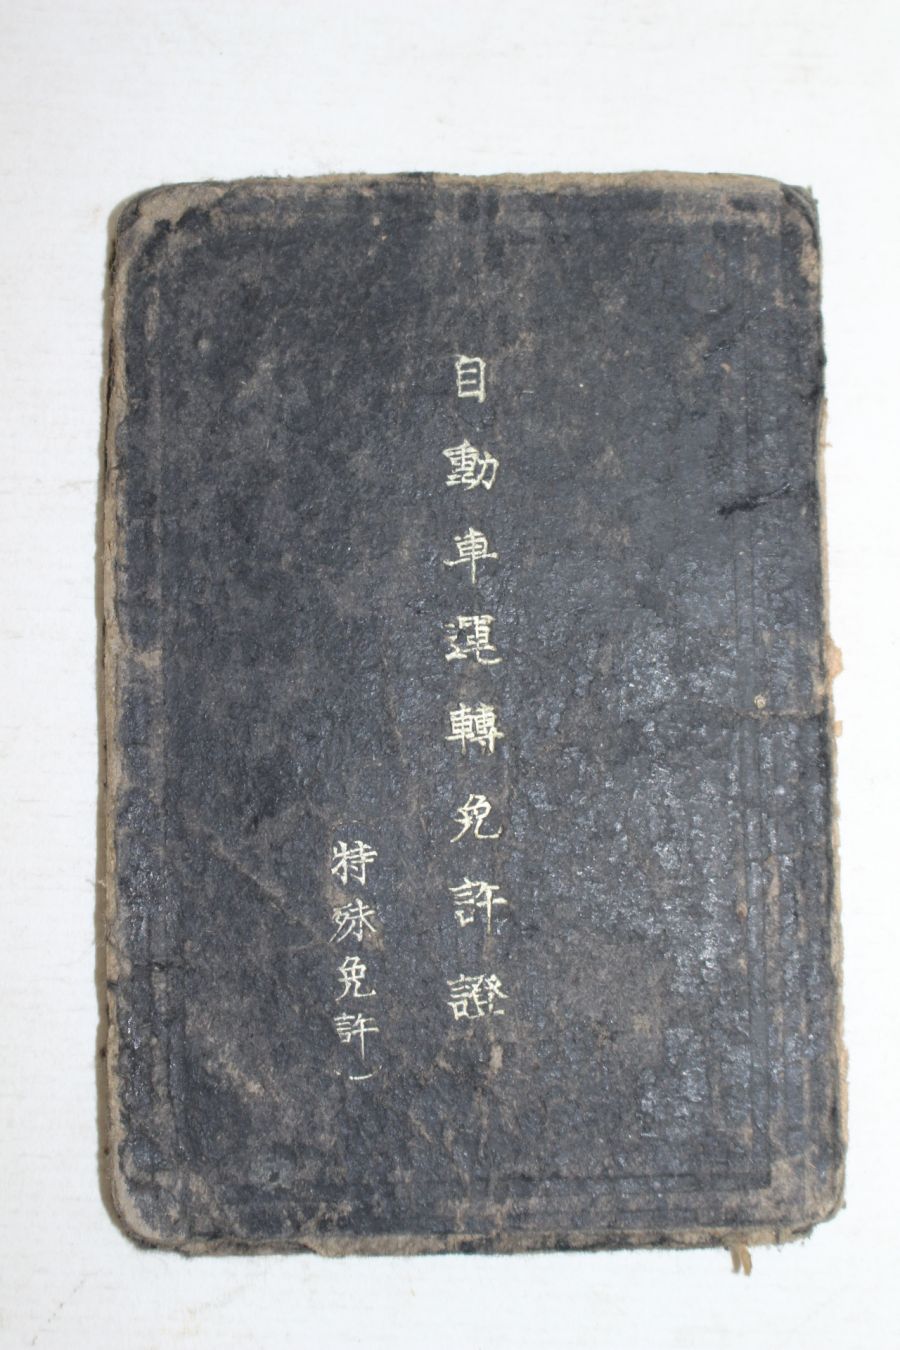 自動車運轉免許證
(特殊免許)